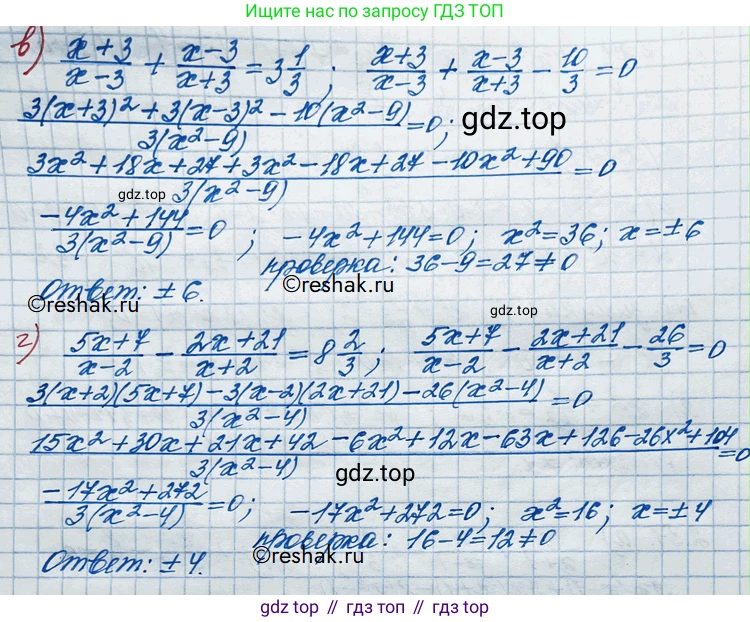 Ищите нас по запросу ГДЗ ТОП
в) (x+3)/(x-3) + (x-3)/(x+3) = 3 1/3 ; (x+3)/(x-3) + (x-3)/(x+3) - 10/3 = 0
(3(x+3)² + 3(x-3)² - 10(x²-9))/(3(x²-9)) = 0;
gdz.top
(3x² + 18x + 27 + 3x² - 18x + 27 - 10x² + 90)/(3(x²-9)) = 0
gdz.top
(-4x² + 144)/(3(x²-9)) = 0 ; -4x² + 144 = 0; x² = 36; x = ±6
проверка: 36-9=27≠0
Ответ: ±6.
©reshak.ru
©reshak.ru
gdz.top
г) (5x+7)/(x-2) - (2x+21)/(x+2) = 8 2/3 ; (5x+7)/(x-2) - (2x+21)/(x+2) - 26/3 = 0
(3(x+2)(5x+7) - 3(x-2)(2x+21) - 26(x²-4))/(3(x²-4)) = 0
(15x² + 30x + 21x + 42 - 6x² + 12x - 63x + 126 - 26x² + 104)/(3(x²-4)) = 0
gdz.top
(-17x² + 272)/(3(x²-4)) = 0; -17x² + 272 = 0; x² = 16; x = ±4
проверка: 16-4=12≠0
Ответ: ±4.
©reshak.ru
©reshak.ru
gdz.top // гдз.топ // гдз топ